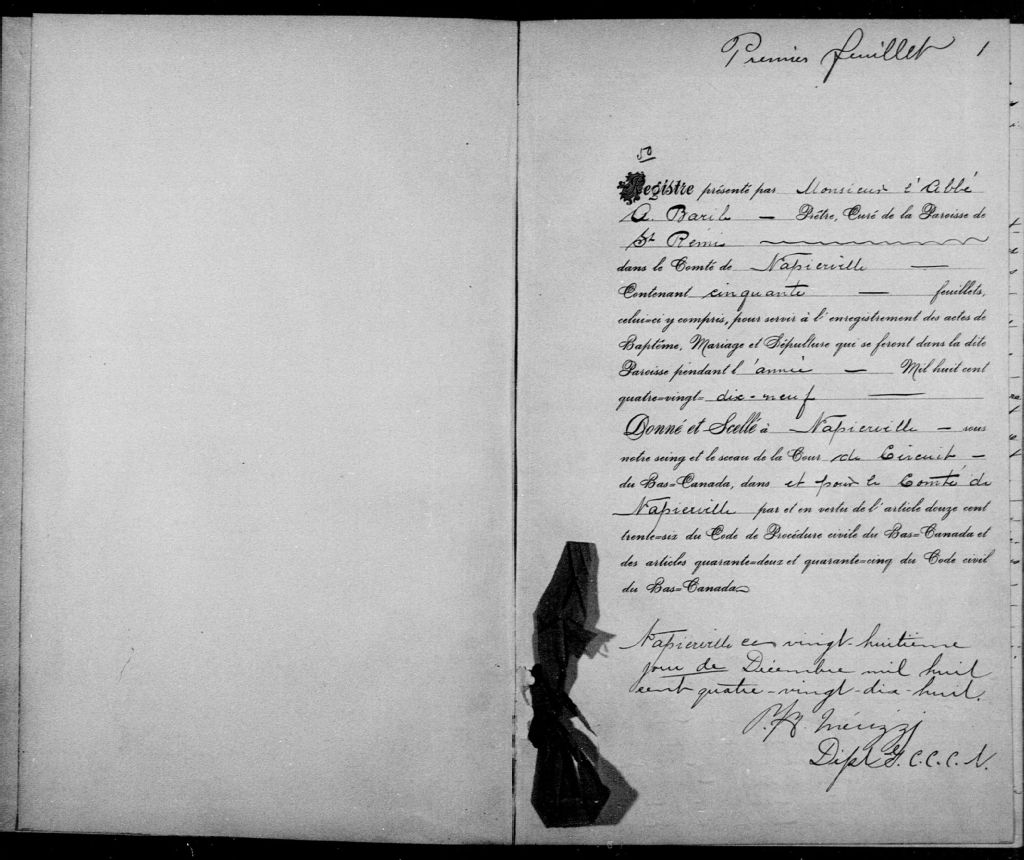 Premier feuillet 1
50
Registre présenté par Monsieur l'Abbé
A. Baril — Prêtre, Curé de la Paroisse de
St Rémi
dans le Comté de Napierville —
Contenant cinquante — feuillets,
celui=ci y compris, pour servir à l'enregistrement des actes de
Baptême, Mariage et Sépulture qui se feront dans la dite
Paroisse pendant l'année — Mil huit cent
quatre=vingt= dix-neuf —
Donné et Scellé à Napierville — sous
notre seing et le sceau de la Cour de Circuit —
du Bas=Canada, dans et pour le Comté de
Napierville par et en vertu de l'article douze cent
trente=six du Code de Procédure civile du Bas=Canada et
des articles quarante=deux et quarante=cinq du Code civil
du Bas=Canada
Napierville ce vingt-huitième
jour de Décembre mil huit
cent quatre-vingt-dix-huit.
Dipt G.C.C.C.N.